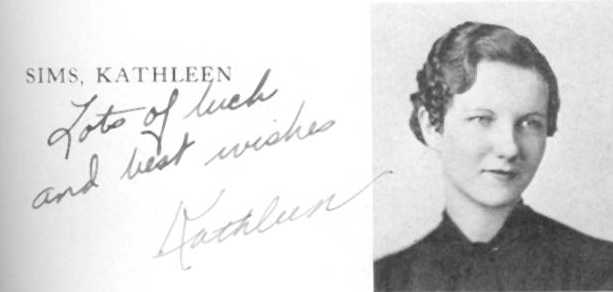 SIMS, KATHLEEN
Lots of luck
and best wishes
Kathleen